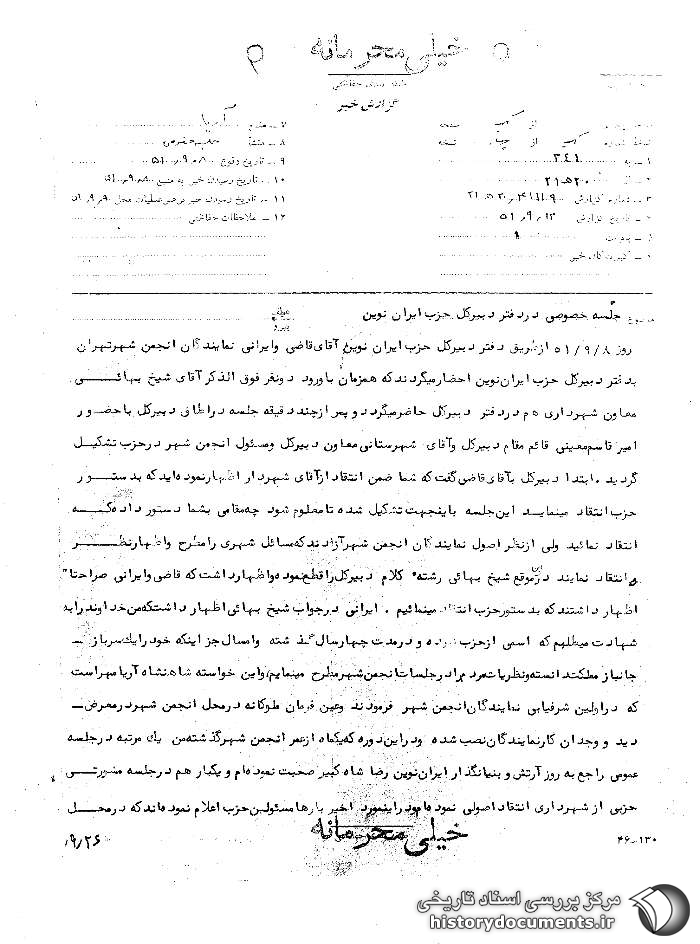 خیلی محرمانه
گزارش خبر
از یک نسخه ۷ ـ مقدم آریا
یک از چهار نسخه ۸ ـ منشأ
۱ ـ به ۳۴۱ ۹ ـ تاریخ وقوع ۵۱،۹،۸
۲ ـ از ۲۱ﻫ۲۰ ۱۰ ـ تاریخ رسیدن خبر به منبع ۵۱،۹،۸
۳ ـ شماره گزارش ۱۱ ـ تاریخ رسیدن خبر برهبر عملیات محل ۵۱،۹،۹
۴ ـ تاریخ گزارش ۵۱،۹،۱۲ ۱۲ ـ ملاحظات حفاظتی
۵ ـ پیوست
۶ ـ گیرندگان خبر
موضوع جلسه خصوصی در دفتر دبیرکل حزب ایران نوین
روز ۵۱/۹/۸ از طریق دفتر دبیرکل حزب ایران نوین آقای قاضی وایرانی نمایندگان انجمن شهرتهران
بدفتر دبیرکل حزب ایران نوین احضار میگردند که همزمان با ورود دونفر فوق الذکر آقای شیخ بهائی
معاون شهرداری هم در دفتر دبیرکل حاضر میگردد و پس از چند دقیقه جلسه در اطاق دبیرکل با حضور
امیر قاسم معینی قائم مقام دبیرکل و آقای شهرستانی معاون دبیرکل ومسئول انجمن شهر در حزب تشکیل
گردید ، ابتدا دبیرکل بآقای قاضی گفت که شما ضمن انتقاد از آقای شهردار اظهار نموده اید که بدستور
حزب انتقاد مینمایید این جلسه باینجهت تشکیل شده تا معلوم شود چه مقامی بشما دستور داده که
انتقاد نمائید ولی از نظر اصول نمایندگان انجمن شهر آزادند که مسائل شهری را مطرح و اظهار نظر
و انتقاد نمایند در این موقع شیخ بهائی رشته کلام دبیرکل را قطع نموده و اظهار داشت که قاضی و ایرانی صراحتاً
اظهار داشتند که بدستور حزب انتقاد مینمائیم . ایرانی در جواب شیخ بهائی اظهار داشت که من خداوند را به
شهادت میطلبم که اسمی از حزب نبوده و در مدت چهارسال گذشته وامسال جز اینکه خود را یک سرباز
جانباز مملکت دانسته ونظریات مردم را در جلسات انجمن شهر مطرح مینمایم واین خواسته شاهنشاه آریامهر است
که در اولین شرفیابی نمایندگان انجمن شهر فرمودند وعین فرمان ملوکانه در محل انجمن شهر در معرض
دید و وجدان کار نمایندگان نصب شده ودر این دوره که یکماه از عمر انجمن شهر گذشته من یک مرتبه در جلسه
عمومی راجع به روز آرتش و بنیانگذار ایران نوین رضا شاه کبیر صحبت نموده ام و یکبار هم در جلسه مشورتی
حزبی از شهرداری انتقاد اصولی نموده ام ودر اینمورد اخیر بارها مسئولین حزب اعلام نموده اند که در محل
خیلی محرمانه
۹/۲۶/ ۴۶ـ۱۳۰
مرکز بررسی اسناد تاریخی
historydocuments.ir